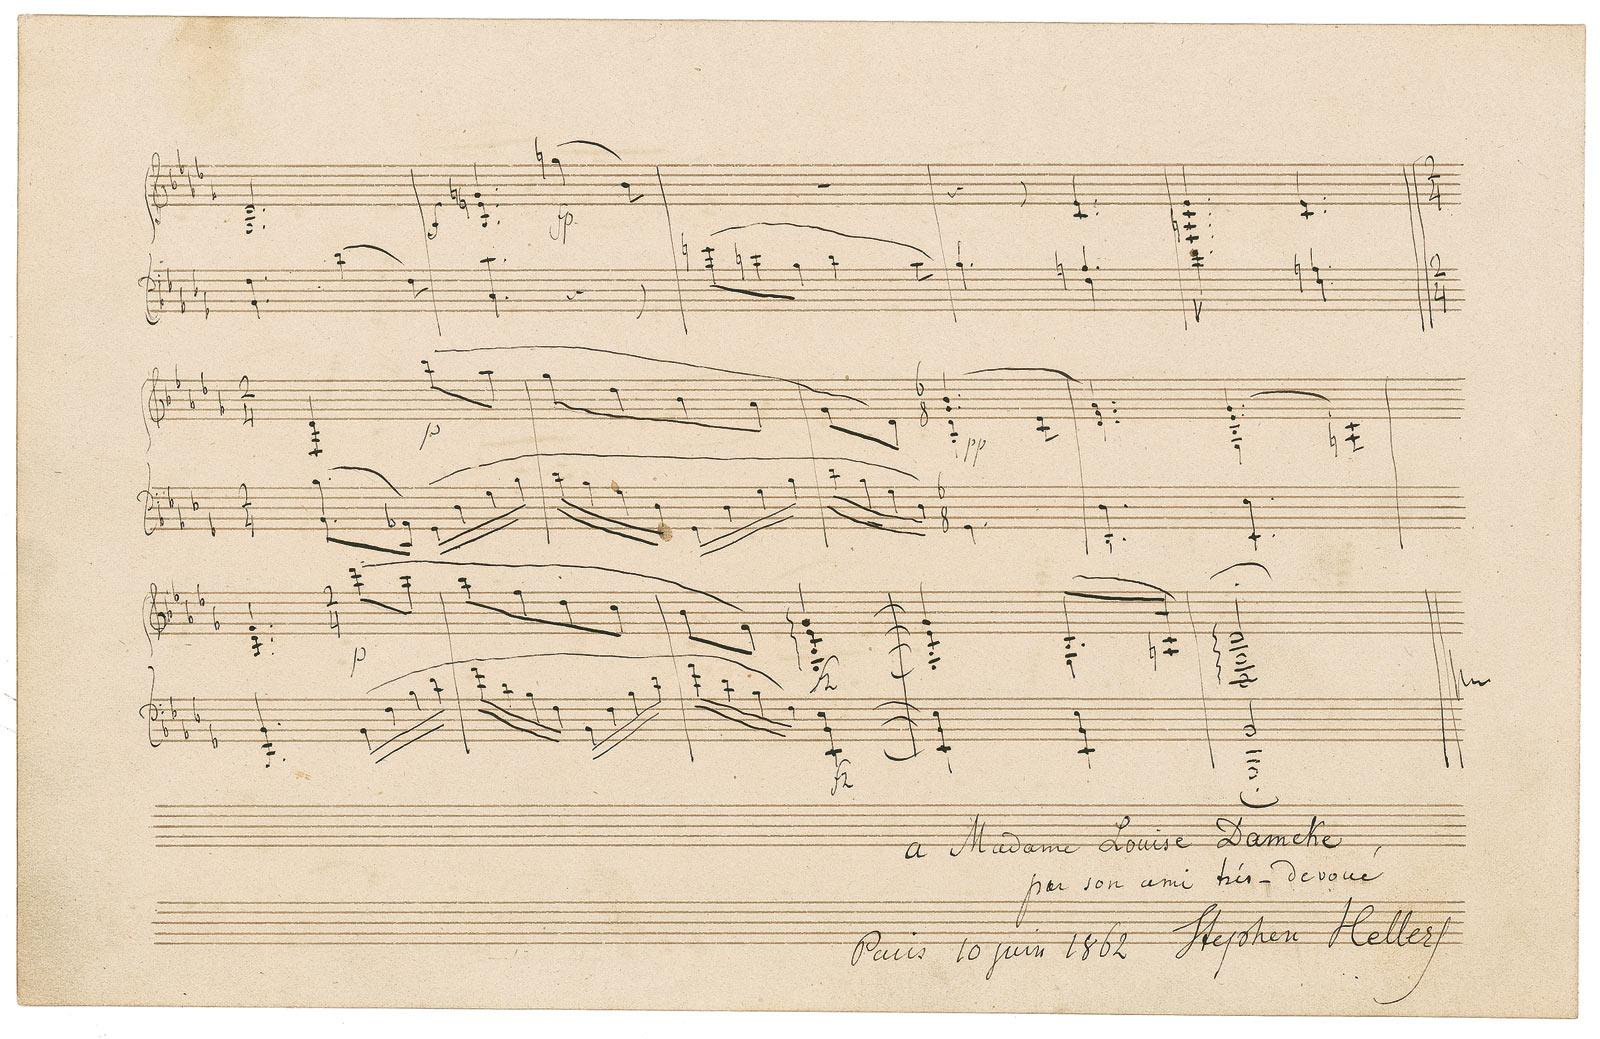 f
fp
2 4
2 4
2 4
p
6 8
pp
2 4
6 8
2 4
p
fz
fz
a Madame Louise Damcke,
par son ami très-devoué
Paris 10 juin 1862 Stephen Heller